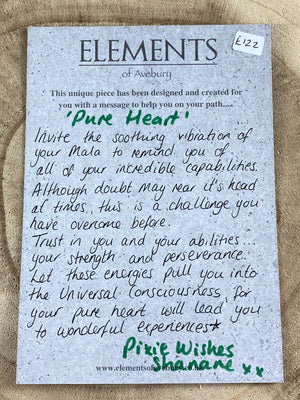 £122
ELEMENTS
of Avebury
This unique piece has been designed and created for
you with a message to help you on your path.....
'Pure Heart'
Invite the soothing vibration of
your Mala to remind you of
all of your incredible capabilities.
Although doubt may rear it's head
at times, this is a challenge you
have overcome before.
Trust in you and your abilities...
your strength and perseverance.
Let these energies pull you into
the Universal Consciousness, for
your pure heart will lead you
to wonderful experiences*
Pixie Wishes
Shanane x x